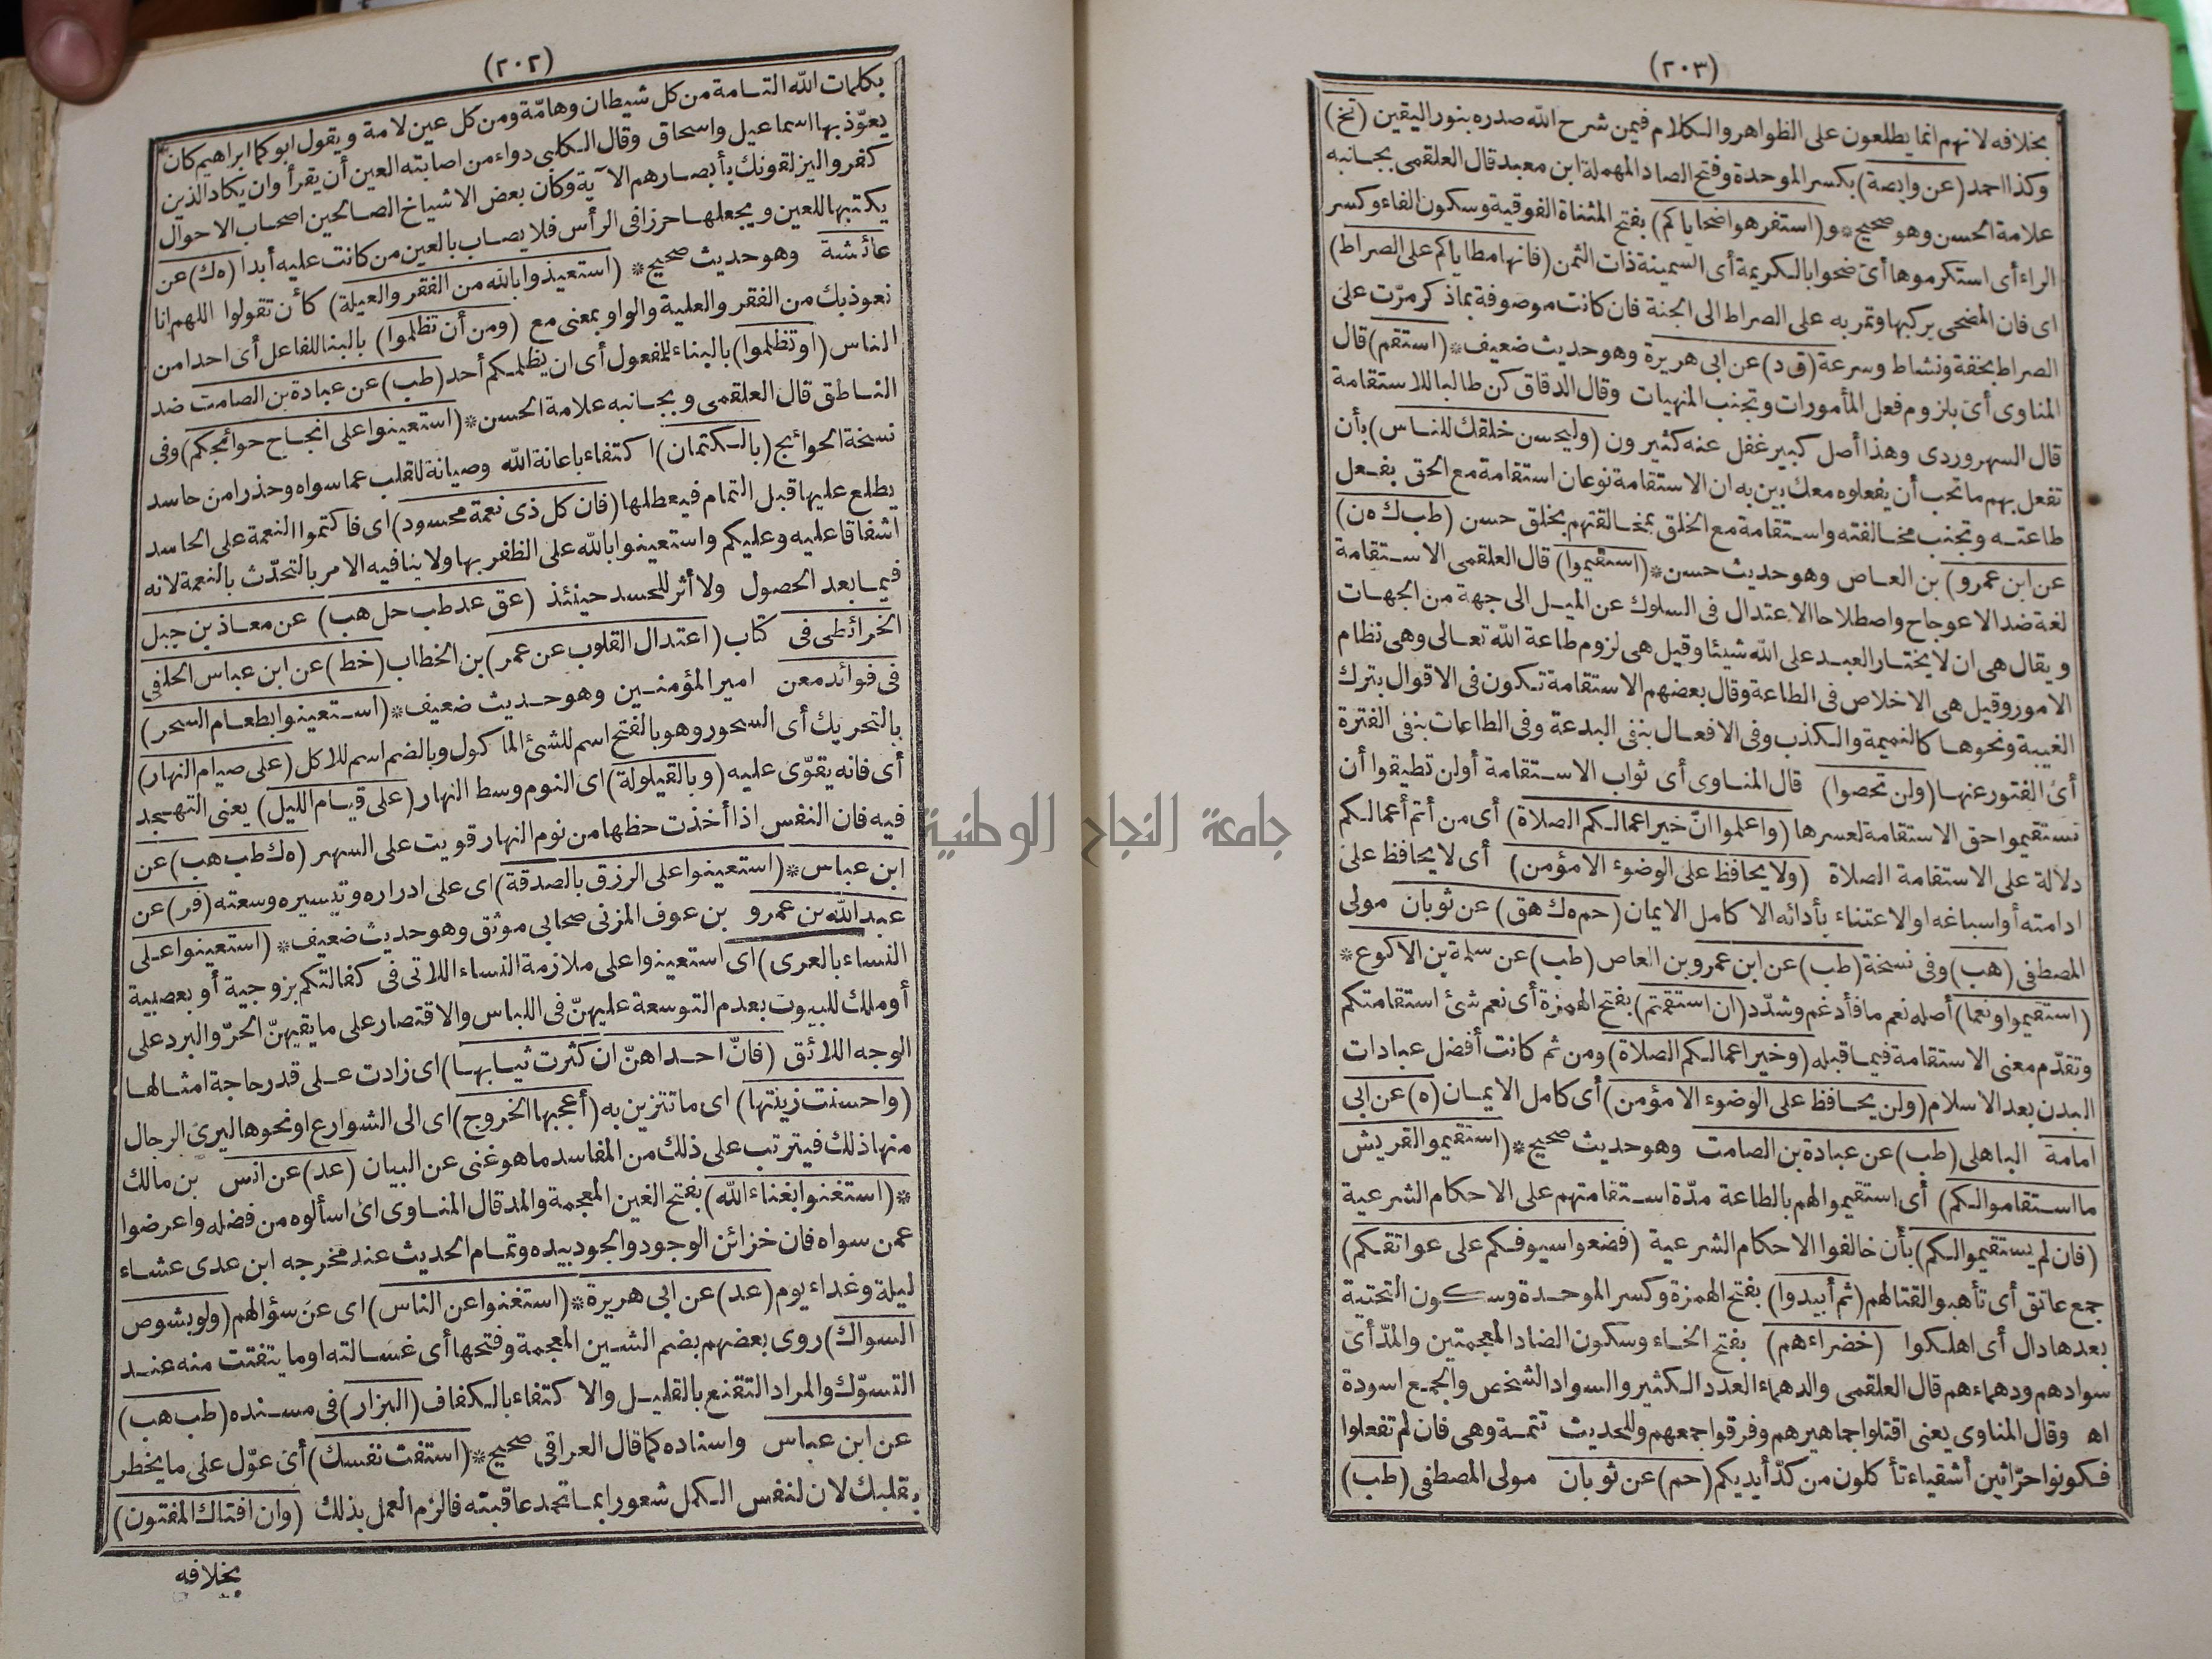 (٢٠٢)
بكلمات الله التامة من كل شيطان وهامّة ومن كل عين لامة ويقول ابوكما ابراهيم كان
يعوّذ بها اسماعيل واسحاق وقال الكلبى دواء من اصابته العين أن يقرأ وان يكاد الذين
كفروا ليزلقونك بأبصارهم الآية وكان بعض الاشياخ الصالحين اصحاب الاحوال
يكتبها للعين ويجعلها حرزا فى الرأس فلا يصاب بالعين من كانت عليه أبدا (ه ك) عن
عائشة وهو حديث صحيح* (استعيذوا بالله من الفقر والعيلة) كأن تقولوا اللهم انا
نعوذ بك من الفقر والعلية والواو بمعنى مع (ومن أن تظلموا) بالبنا للفاعل أى احدا من
الناس (او تظلموا) بالبناء للمفعول أى ان يظلمكم أحد (طب) عن عبادة بن الصامت ضد
الناطق قال العلقمى وبجانبه علامة الحسن* (استعينوا على انجاح حوائجكم) وفى
نسخة الحوائج (بالكتمان) اكتفاء باعانة الله وصيانة للقلب عما سواه وحذرا من حاسد
يطلع عليها قبل التمام فيعطلها (فان كل ذى نعمة محسود) اى فاكتموا النعمة على الحاسد
اشفاقا عليه وعليكم واستعينوا بالله على الظفر بها ولا ينافيه الامر بالتحدّث بالنعمة لانه
فيما بعد الحصول ولا أثر للحسد حينئذ (عق عد طب حل هب) عن معاذ بن جبل
الخرائطى فى كتاب (اعتدال القلوب عن عمر) بن الخطاب (خط) عن ابن عباس الخلفى
فى فوائد معن امير المؤمنين وهو حديث ضعيف* (استعينوا بطعام السحر)
بالتحريك أى السحور وهو بالفتح اسم للشئ الماكول وبالضم اسم للاكل (على صيام النهار)
أى فانه يقوّى عليه (وبالقيلولة) اى النوم وسط النهار (على قيام الليل) يعنى التهجد
فيه فان النفس اذا أخذت حظها من نوم النهار قويت على السهر (ه ك طب هب) عن
ابن عباس* (استعينوا على الرزق بالصدقة) اى على ادراره وتيسيره وسعته (فر) عن
عبد الله بن عمرو بن عوف المزنى صحابى موثق وهو حديث ضعيف* (استعينوا على
النساء بالعرى) اى استعينوا على ملازمة النساء اللاتى فى كفالتكم بزوجية أو بعصبية
أو ملك للبيوت بعدم التوسعة عليهنّ فى اللباس والاقتصار على ما يقيهنّ الحرّ والبرد على
الوجه اللائق (فانّ احداهنّ ان كثرت ثيابها) اى زادت على قدر حاجة امثالها
(واحسنت زينتها) اى ما تتزين به (أعجبها الخروج) اى الى الشوارع او نحوها ليرى الرجال
منها ذلك فيترتب على ذلك من المفاسد ما هو غنى عن البيان (عد) عن انس بن مالك
* (استغنوا بغناء الله) بفتح الغين المعجمة والمد قال المناوى اى اسألوه من فضله واعرضوا
عمن سواه فان خزائن الوجود والجود بيده وتمام الحديث عند مخرجه ابن عدى عشاء
ليلة وغداء يوم (عد) عن ابى هريرة* (استغنوا عن الناس) اى عن سؤالهم (ولو بشوص
السواك) روى بعضهم بضم الشين المعجمة وفتحها أى غسالته او ما يتفتت منه عند
التسوّك والمراد التقنع بالقليل والاكتفاء بالكفاف (البزار) فى مسنده (طب هب)
عن ابن عباس واسناده كما قال العراقى صحيح* (استفت نفسك) أى عوّل على ما يخطر
بقلبك لان لنفس الكمل شعورا بما تحمد عاقبته فالزم العمل بذلك (وان افتاك المفتون)
بخلافه
(٢٠٣)
بخلافه لانهم انما يطلعون على الظواهر والكلام فيمن شرح الله صدره بنور اليقين (تخ)
وكذا احمد (عن وابصة) بكسر الموحدة وفتح الصاد المهملة ابن معبد قال العلقمى بجانبه
علامة الحسن وهو صحيح* و(استفرهوا ضحاياكم) بفتح المثناة الفوقية وسكون الفاء وكسر
الراء أى استكرموها أى ضحوا بالكريمة أى السمينة ذات الثمن (فانها مطاياكم على الصراط)
اى فان المضحى يركبها وتمر به على الصراط الى الجنة فان كانت موصوفة بماذكر مرّت على
الصراط بخفة ونشاط وسرعة (ق د) عن ابى هريرة وهو حديث ضعيف* (استقم) قال
المناوى أى بلزوم فعل المأمورات وتجنب المنهيات وقال الدقاق كن طالبا للاستقامة
قال السهروردى وهذا أصل كبير غفل عنه كثيرون (وليحسن خلقك للناس) بأن
تفعل بهم ما تحب أن يفعلوه معك بين به ان الاستقامة نوعان استقامة مع الحق بفعل
طاعته وتجنب مخالفته واستقامة مع الخلق بمخالقتهم بخلق حسن (طب ك هن)
عن ابن عمرو) بن العاص وهو حديث حسن* (استقيموا) قال العلقمى الاستقامة
لغة ضد الاعوجاج واصطلاحا الاعتدال فى السلوك عن الميل الى جهة من الجهات
ويقال هى ان لا يختار العبد على الله شيئا وقيل هى لزوم طاعة الله تعالى وهى نظام
الامور وقيل هى الاخلاص فى الطاعة وقال بعضهم الاستقامة تكون فى الاقوال بترك
الغيبة ونحوها كالنميمة والكذب وفى الافعال بنفى البدعة وفى الطاعات بنفى الفترة
أى الفتور عنها (ولن تحصوا) قال المناوى أى ثواب الاستقامة أو لن تطيقوا أن
تستقيموا حق الاستقامة لعسرها (واعلموا انّ خير اعمالكم الصلاة) أى من أتم أعمالكم
دلالة على الاستقامة الصلاة (ولا يحافظ على الوضوء الا مؤمن) أى لا يحافظ على
ادامته أو اسباغه او الاعتناء بأدائه الا كامل الايمان (حم ه ك هق) عن ثوبان مولى
المصطفى (هب) وفى نسخة (طب) عن ابن عمرو بن العاص (طب) عن سلمة بن الاكوع*
(استقيموا ونعما) أصله نعم ما فأدغم وشدّد (ان استقمتم) بفتح الهمزة أى نعم شئ استقامتكم
وتقدّم معنى الاستقامة فيما قبله (وخير اعمالكم الصلاة) ومن ثم كانت أفضل عبادات
البدن بعد الاسلام (ولن يحافظ على الوضوء الا مؤمن) أى كامل الايمان (ه) عن ابى
امامة الباهلى (طب) عن عبادة بن الصامت وهو حديث صحيح* (استقيموا لقريش
ما استقاموا لكم) أى استقيموا لهم بالطاعة مدّة استقامتهم على الاحكام الشرعية
(فان لم يستقيموا لكم) بأن خالفوا الاحكام الشرعية (فضعوا سيوفكم على عواتقكم)
جمع عاتق أى تأهبوا لقتالهم (ثم أبيدوا) بفتح الهمزة وكسر الموحدة وسكون التحتية
بعدها دال أى اهلكوا (خضراءهم) بفتح الخاء وسكون الضاد المعجمتين والمدّ أى
سوادهم ودهماءهم قال العلقمى والدهماء العدد الكثير والسواد الشخص والجمع اسودة
اه وقال المناوى يعنى اقتلوا جماهيرهم وفرقوا جمعهم وللحديث تتمة وهى فان لم تفعلوا
فكونوا حرّاثين أشقياء تأكلون من كدّ أيديكم (حم) عن ثوبان مولى المصطفى (طب)
جامعة النجاح الوطنية